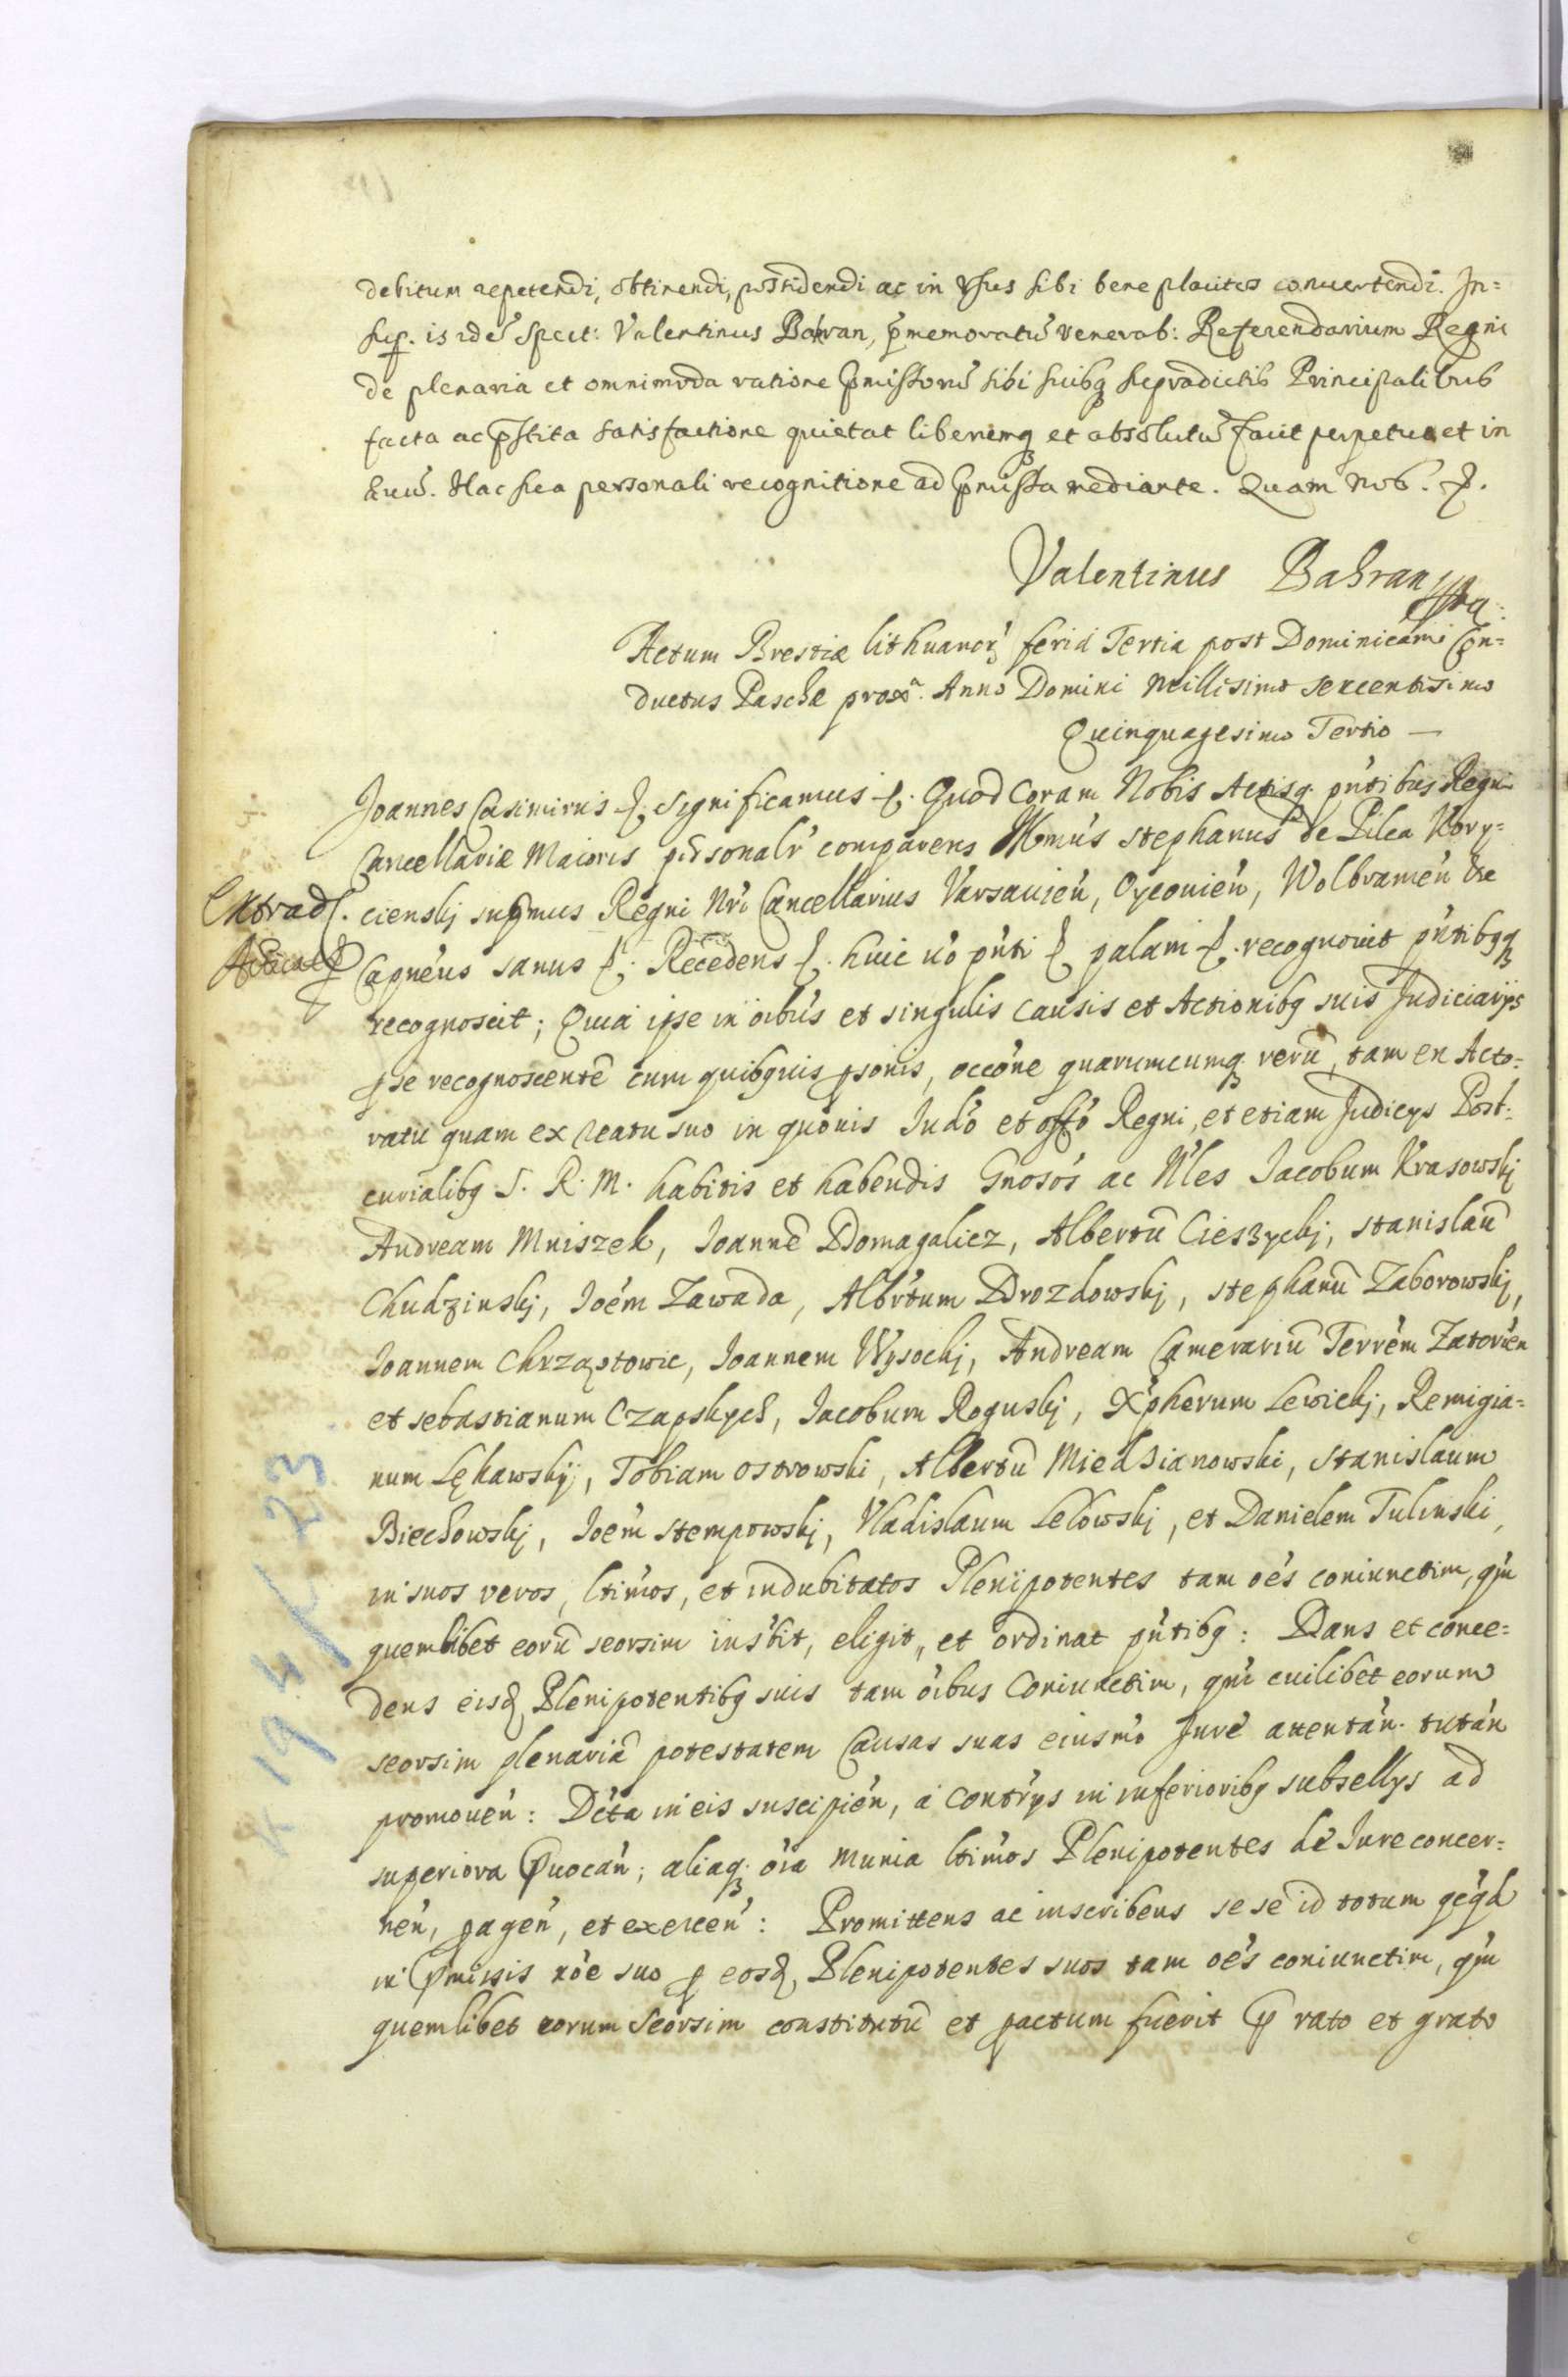 debitum repetendi, obtinendi, possidendi ac in usus sibi bene placitos convertendi. In=
sup. is idẽ Spect: Valentinus Bahran, p̃memoratũ venerab: Referendarium Regni
de plenaria et omnimoda ratione p̃missorũ sibi suibq supradictis Principalibus
facta ac p̃stita satisfactione quietat liberumq et absolutũ facit perpetuo et in
ævũ. Hac sua personali recognitione ad p̃missa mediante. Quam Nos.
Valentinus Bahran
Actum Brestiæ lithuanoꝝ feria Tertia post Dominicam Con=
ductus Paschæ proxã. Anno Domini Millesimo sexcentesimo
Quinquagesimo Tertio —
Joannes Casimirus &. Significamus &. Quod Coram Nobis Actisq. pñtibus Regni
Cancellariæ Maioris psonalr comparens Illmus Stephanus de Pilca Kory=
cienskj supmus Regni Nri Cancellarius Varsavień, Oyconień, Wolbrameń &c
Capneus sanus &. Recedens &. huic uo pnti & palam &. recognovit pntibqq
recognoscit; Quia ipse in oibus et singulis causis et Actionibq suis Judiciarijs
p se recognoscentẽ cum quibquis psonis, occone quarumcumq. rerũ, tam ex Acto=
ratu quam ex reatu suo in quovis Judo et offo Regni, et etiam Judicys Post=
curialibq S. R. M. habitis et habendis Gnosos ac Nles Jacobum Krasowskj
Andream Mniszek, Joannẽ Domagalicz, Albertũ Cieszyckj, Stanislaũ
Chudzinskj, Joem Zawada, Albrtum Drozdowskj, Stephanũ Zaborowskj,
Joannem Chrząstowic, Joannem Wysockj, Andream Camerariũ Terrem Zatorień
et Sebastianum Czapskych, Jacobum Roguskj, Xpherum Lewickj, Remigia=
num Lękawskij, Tobiam Ostrowski, Albertũ Miedzianowski, Stanislaum
Biechowskj, Joem Stempowskj, Vladislaum Lelowskj, et Danielem Tulinski,
in suos veros, ltimos, et indubitatos Plenipotentes tam oes coniunctim, qm
quemlibet eorũ seorsim instit, eligit, et ordinat pntibq: Dans et conce=
dens eisd Plenipotentibq suis tam oibus Coniunctim, qm cuilibet eorum
seorsim plenariã potestatem Causas suas eiusmo Jure attentań. tutań
promoveń: Dcta in eis suscipień, a Contrys in inferioribq subsellys ad
superiora pvocań; aliaq. oia munia ltimos Plenipotentes de Jure concer=
neń, pageń, et exerceń: Promittens ac inscribens sese id totum qcqd
in pmissis noe suo p eosd Plenipotentes suos tam oes coniunctim, qm
quemlibet eorum Seorsim constitutũ et pactum fuerit p rato et grato
K 194/23